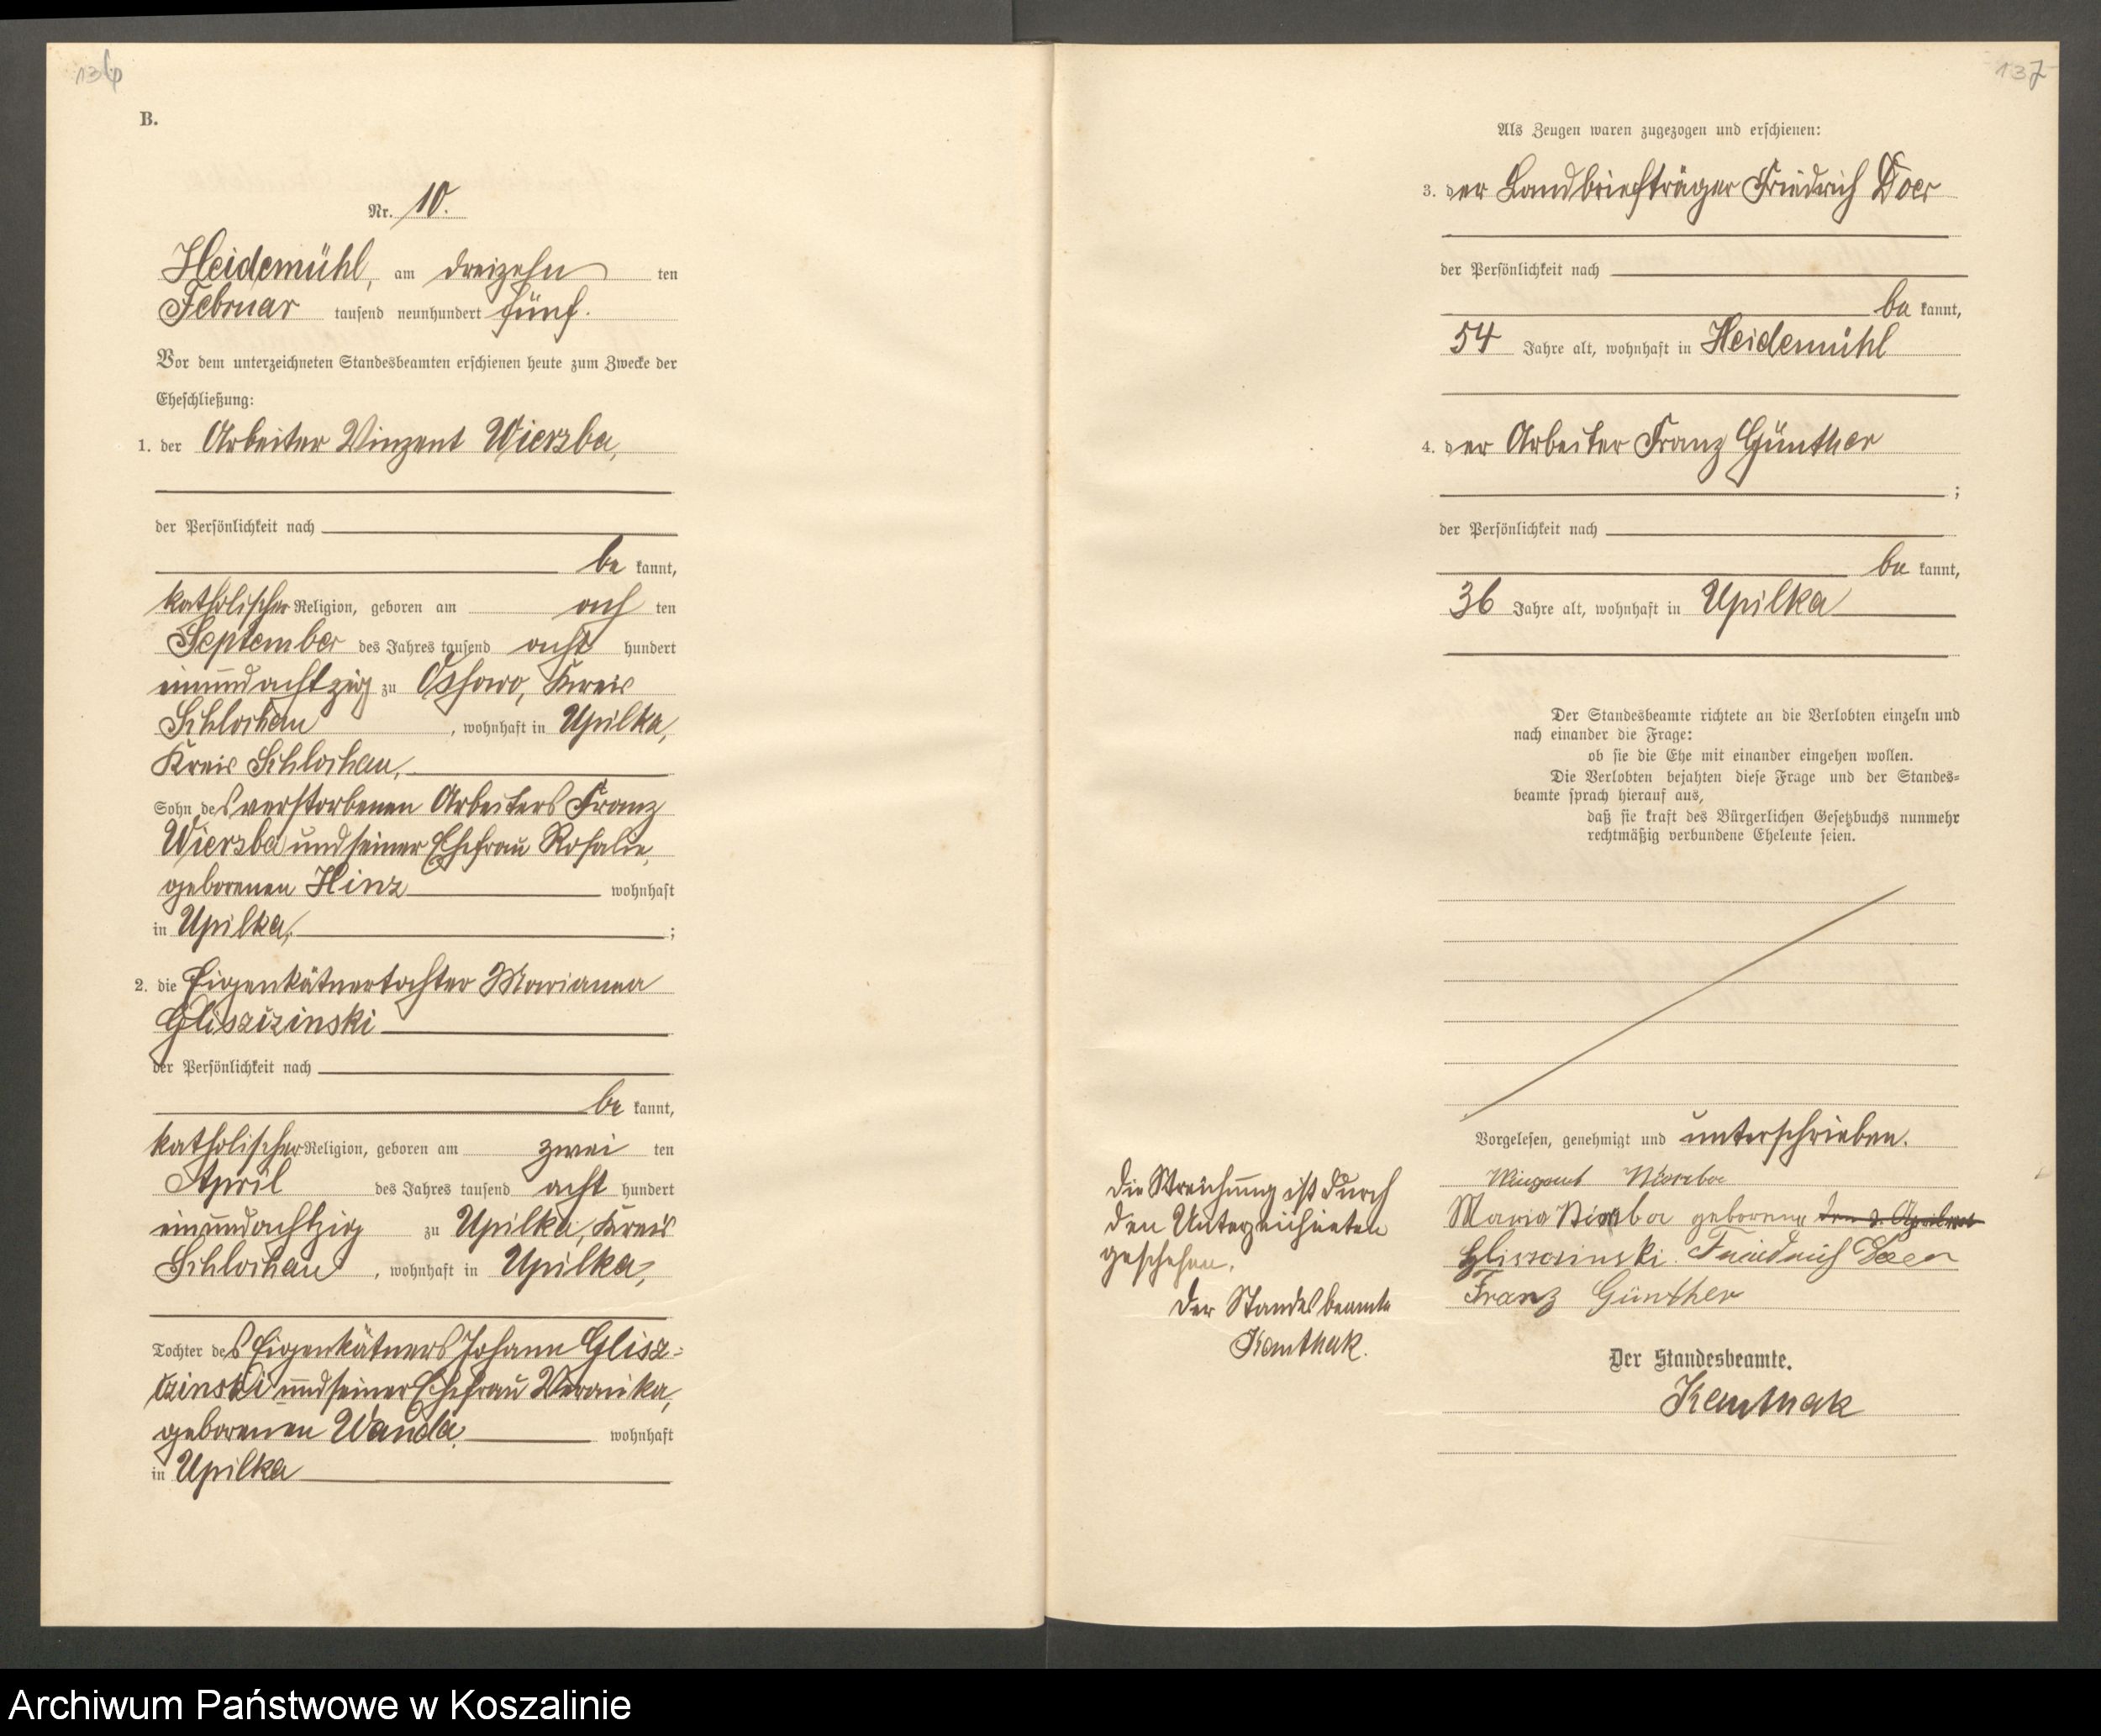 136
B.
Nr. 10.
Heidemühl, am dreizehn ten
Februar tausend neunhundert fünf.
Vor dem unterzeichneten Standesbeamten erschienen heute zum Zwecke der
Eheschließung:
1. der Arbeiter Vinzent Wierzba,
der Persönlichkeit nach
be kannt,
katholischer Religion, geboren am ach ten
September des Jahres tausend acht hundert
einundachtzig zu Ossowo, Kreis
Schlochau, wohnhaft in Upilka,
Kreis Schlochau,
Sohn des verstorbenen Arbeiters Franz
Wierzba und seiner Ehefrau Rosalie,
geborenen Hinz wohnhaft
in Upilka, ;
2. die Eigenkätnertochter Marianna
Gliszczinski
der Persönlichkeit nach
be kannt,
katholischer Religion, geboren am zwei ten
April des Jahres tausend acht hundert
einundachtzig zu Upilka, Kreis
Schlochau, wohnhaft in Upilka,
Tochter des Eigenkätners Johann Glisz=
czinski und seiner Ehefrau Veronika,
geborenen Wanda, wohnhaft
in Upilka
137
Als Zeugen waren zugezogen und erschienen:
3. der Landbriefträger Friedrich Doer
der Persönlichkeit nach
be kannt,
54 Jahre alt, wohnhaft in Heidemühl
4. der Arbeiter Franz Günther
;
der Persönlichkeit nach
be kannt,
36 Jahre alt, wohnhaft in Upilka
Der Standesbeamte richtete an die Verlobten einzeln und
nach einander die Frage:
ob sie die Ehe mit einander eingehen wollen.
Die Verlobten bejahten diese Frage und der Standes=
beamte sprach hierauf aus,
daß sie kraft des Bürgerlichen Gesetzbuchs nunmehr
rechtmäßig verbundene Eheleute seien.
Vorgelesen, genehmigt und unterschrieben.
Vinzent Wierzba
Maria Wierzba geborene
Gliszczinski. Friedrich Doer
Franz Günther
Die Streichung ist durch
den Unterzeichneten
geschehen.
Der Standesbeamte
Kamthak.
Der Standesbeamte.
Kamthak
Archiwum Państwowe w Koszalinie